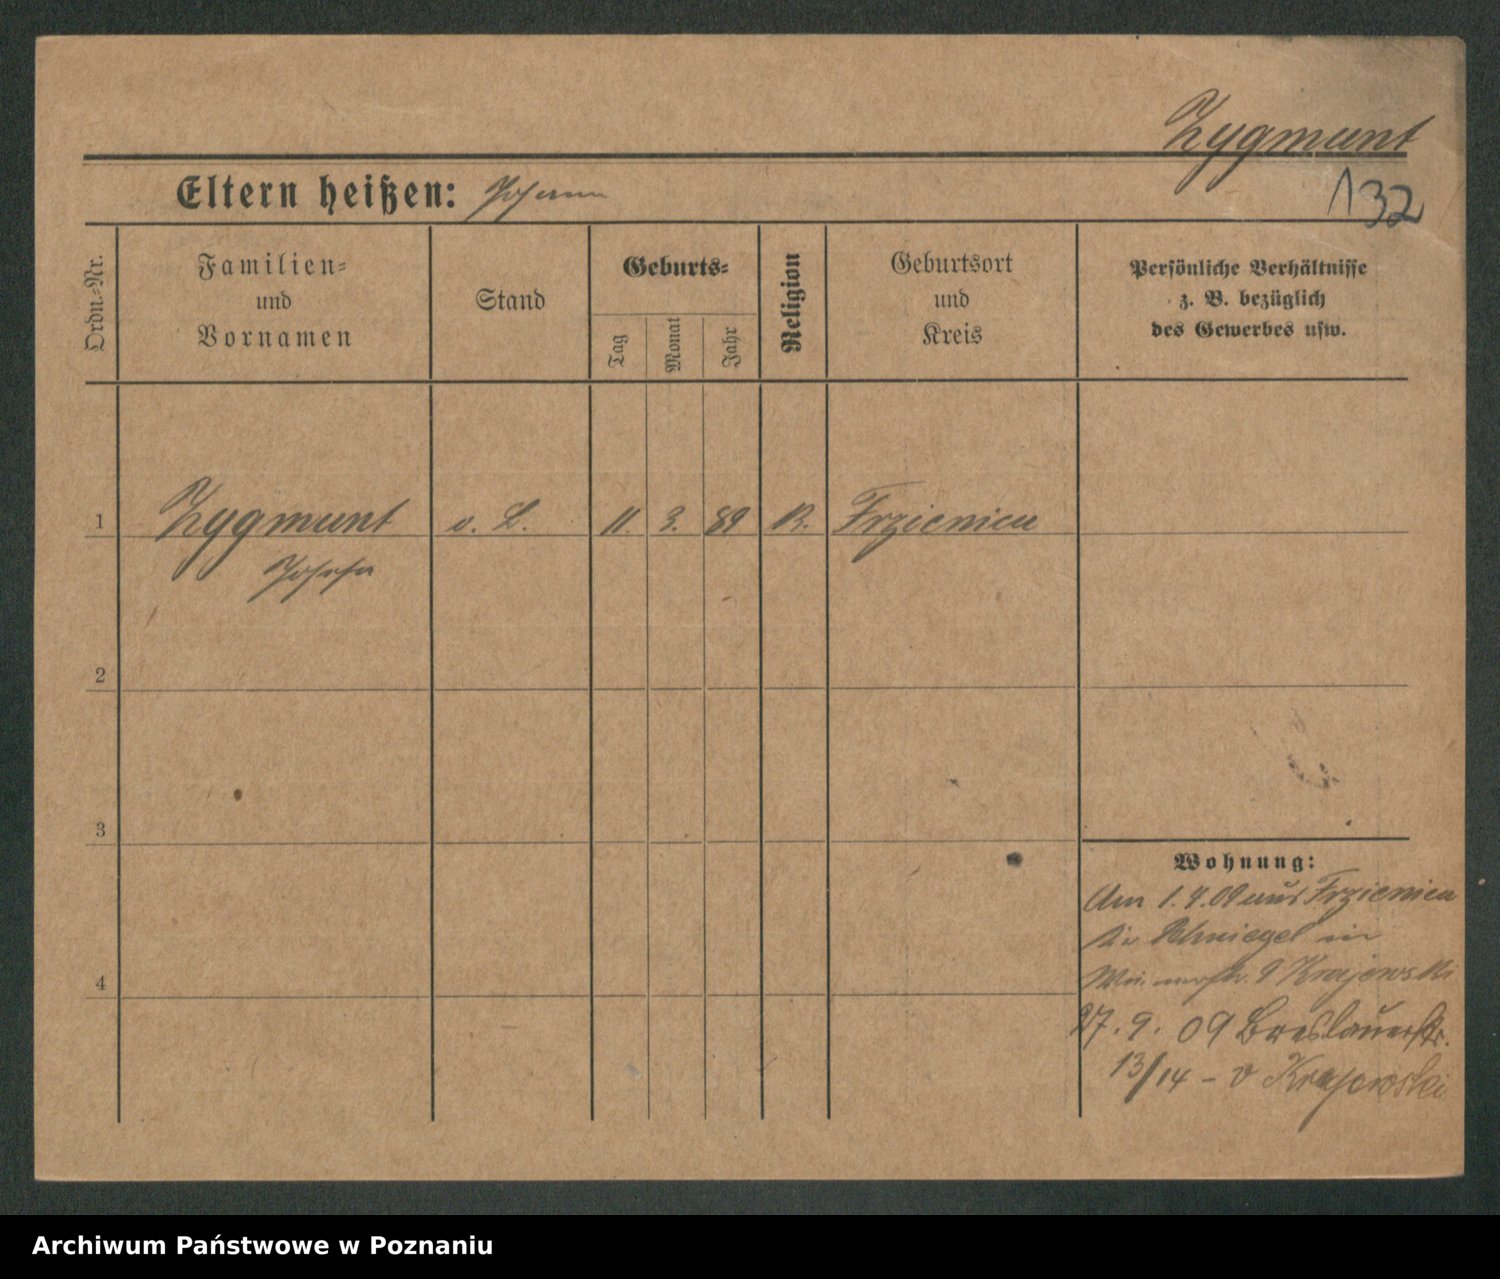 Zygmunt
132
Eltern heißen: Johann
Ordn.-Nr.
Familien-
und
Vornamen
Stand
Geburts-
Tag
Monat
Jahr
Religion
Geburtsort
und
Kreis
Persönliche Verhältnisse
z. B. bezüglich
des Gewerbes usw.
1 Zygmunt o. B. 11. 3. 89 R. Frzienica
Josefa
2
3
4
Wohnung:
Am 1.4.09 aus Frzienica
Kr Schmiegel in
9 Krajewski
27. 9. 09 Breslauerstr.
13/14 - v Krajewski
Archiwum Państwowe w Poznaniu